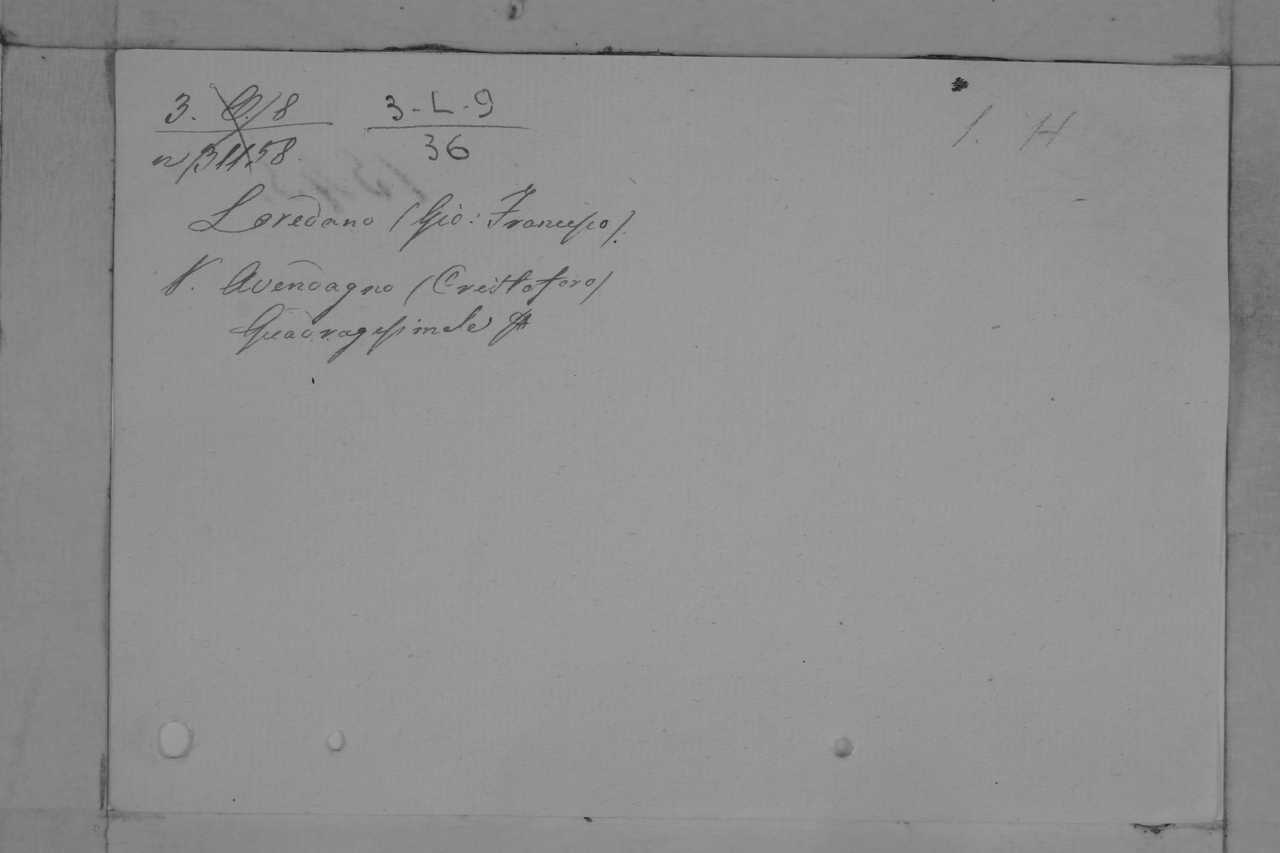 3. 8 3-L-9
36
Loredano (Gio: Francesco).
V. Avendagno (Cristoforo)
Quadragesimale
1. H